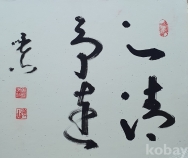 心清
事達
kobay